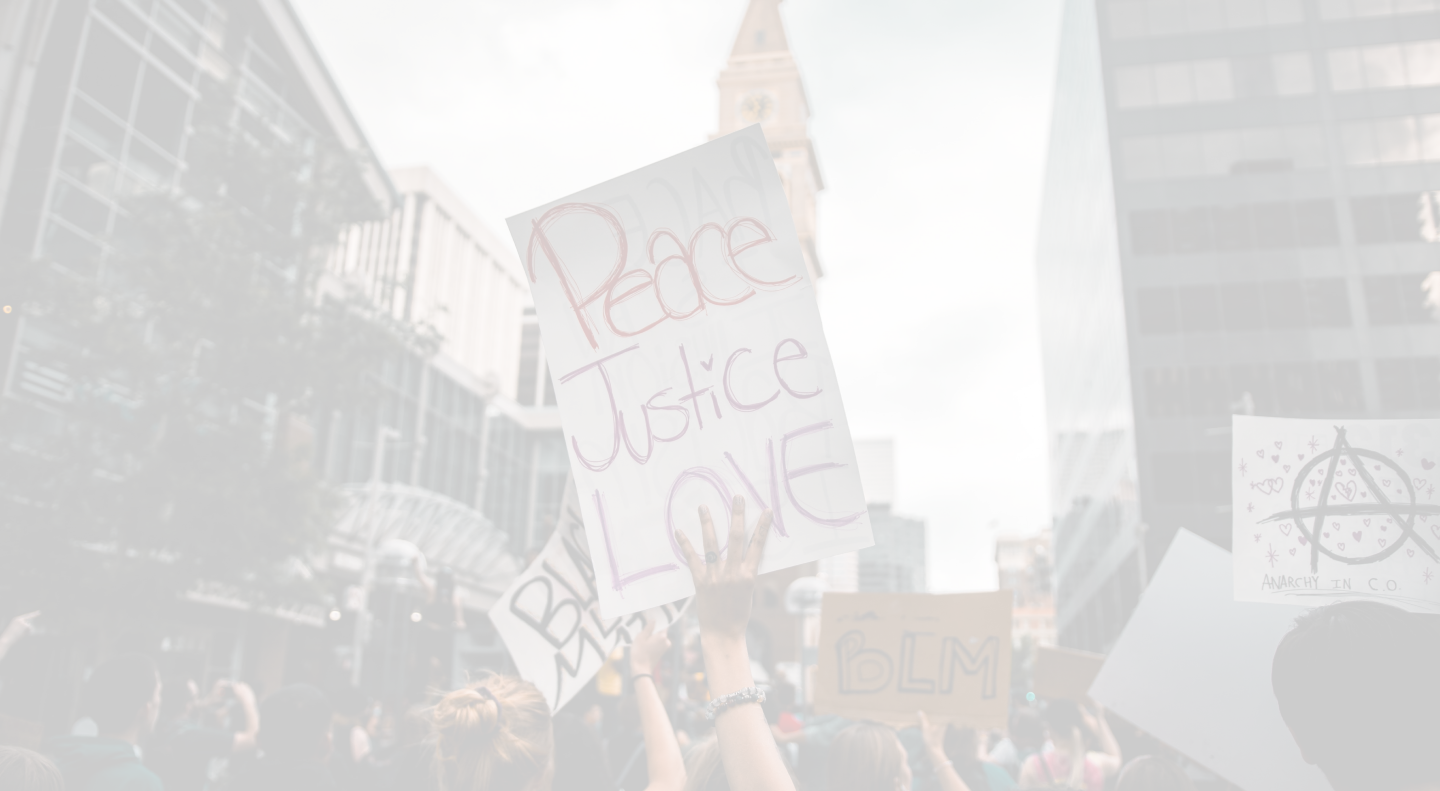 Peace
Justice
LOVE
BLM
ANARCHY IN C.O